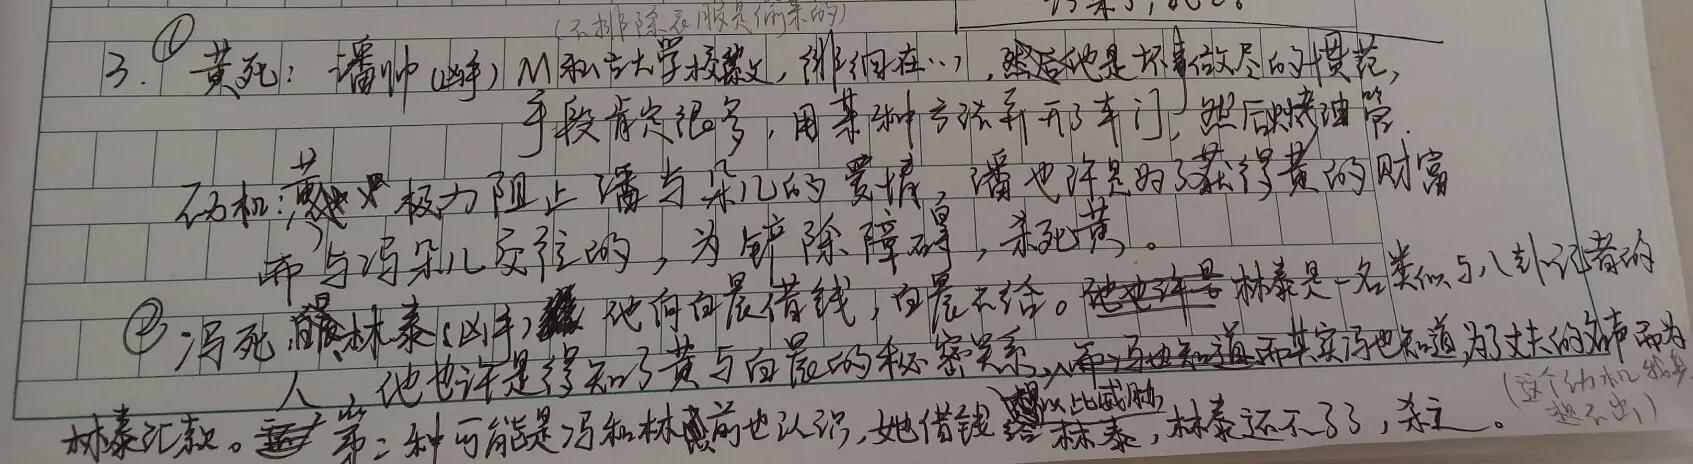 (不排除衣服是偷来的)
3. ① 黄死：潘帅(凶手) M私立大学校散文，徘徊在…，然后他是坏事做尽的惯犯，
手段肯定很多，用某种方法弄开了车门，然后烧油管.
动机：黄极力阻止潘与朵儿的爱情，潘也许是为了获得黄的财富
而与冯朵儿交往的，为铲除障碍，杀死黄。
② 冯死 林泰(凶手) 他向白晨借钱，白晨不给。他也许是林泰是一名类似与八卦记者的
人，他也许是得知了黄与白晨的秘密关系，而冯也知道而其实冯也知道，为了丈夫的名声而为
(这个动机
林泰汇款。第二种可能是冯和林前也认识，她借钱给林泰，想以此威胁，林泰还不了了，杀之。
想不出)